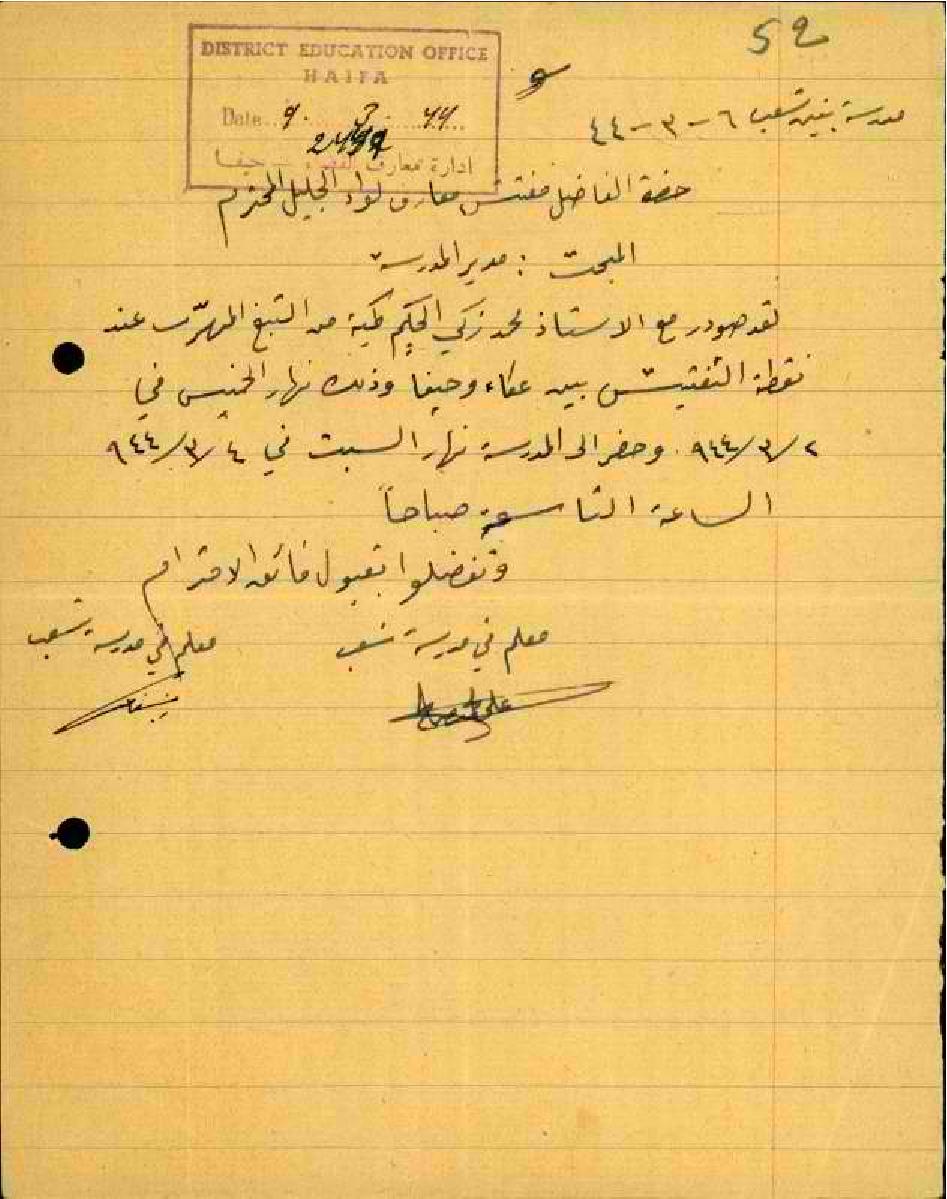 52
DISTRICT EDUCATION OFFICE
HAIFA
Date.. 9. 3. 44
ادارة معارف حيفا
مدرسة بنين شعب ٦-٣-٤٤
حضرة الفاضل مفتش معارف لواء الجليل المحترم
المبحث : مدير المدرسة
لقد صودر مع الاستاذ محمد زكي الحكيم كمية من التبغ المهرّب عند
نقطة التفتيش بين عكاء وحيفا وذلك نهار الخميس في
٢/٣/٩٤٤. وحضر الى المدرسة نهار السبت في ٤/٣/٩٤٤
الساعة التاسعة صباحاً
وتفضلوا بقبول فائق الاحترام
معلم في مدرسة شعب
معلم في مدرسة شعب